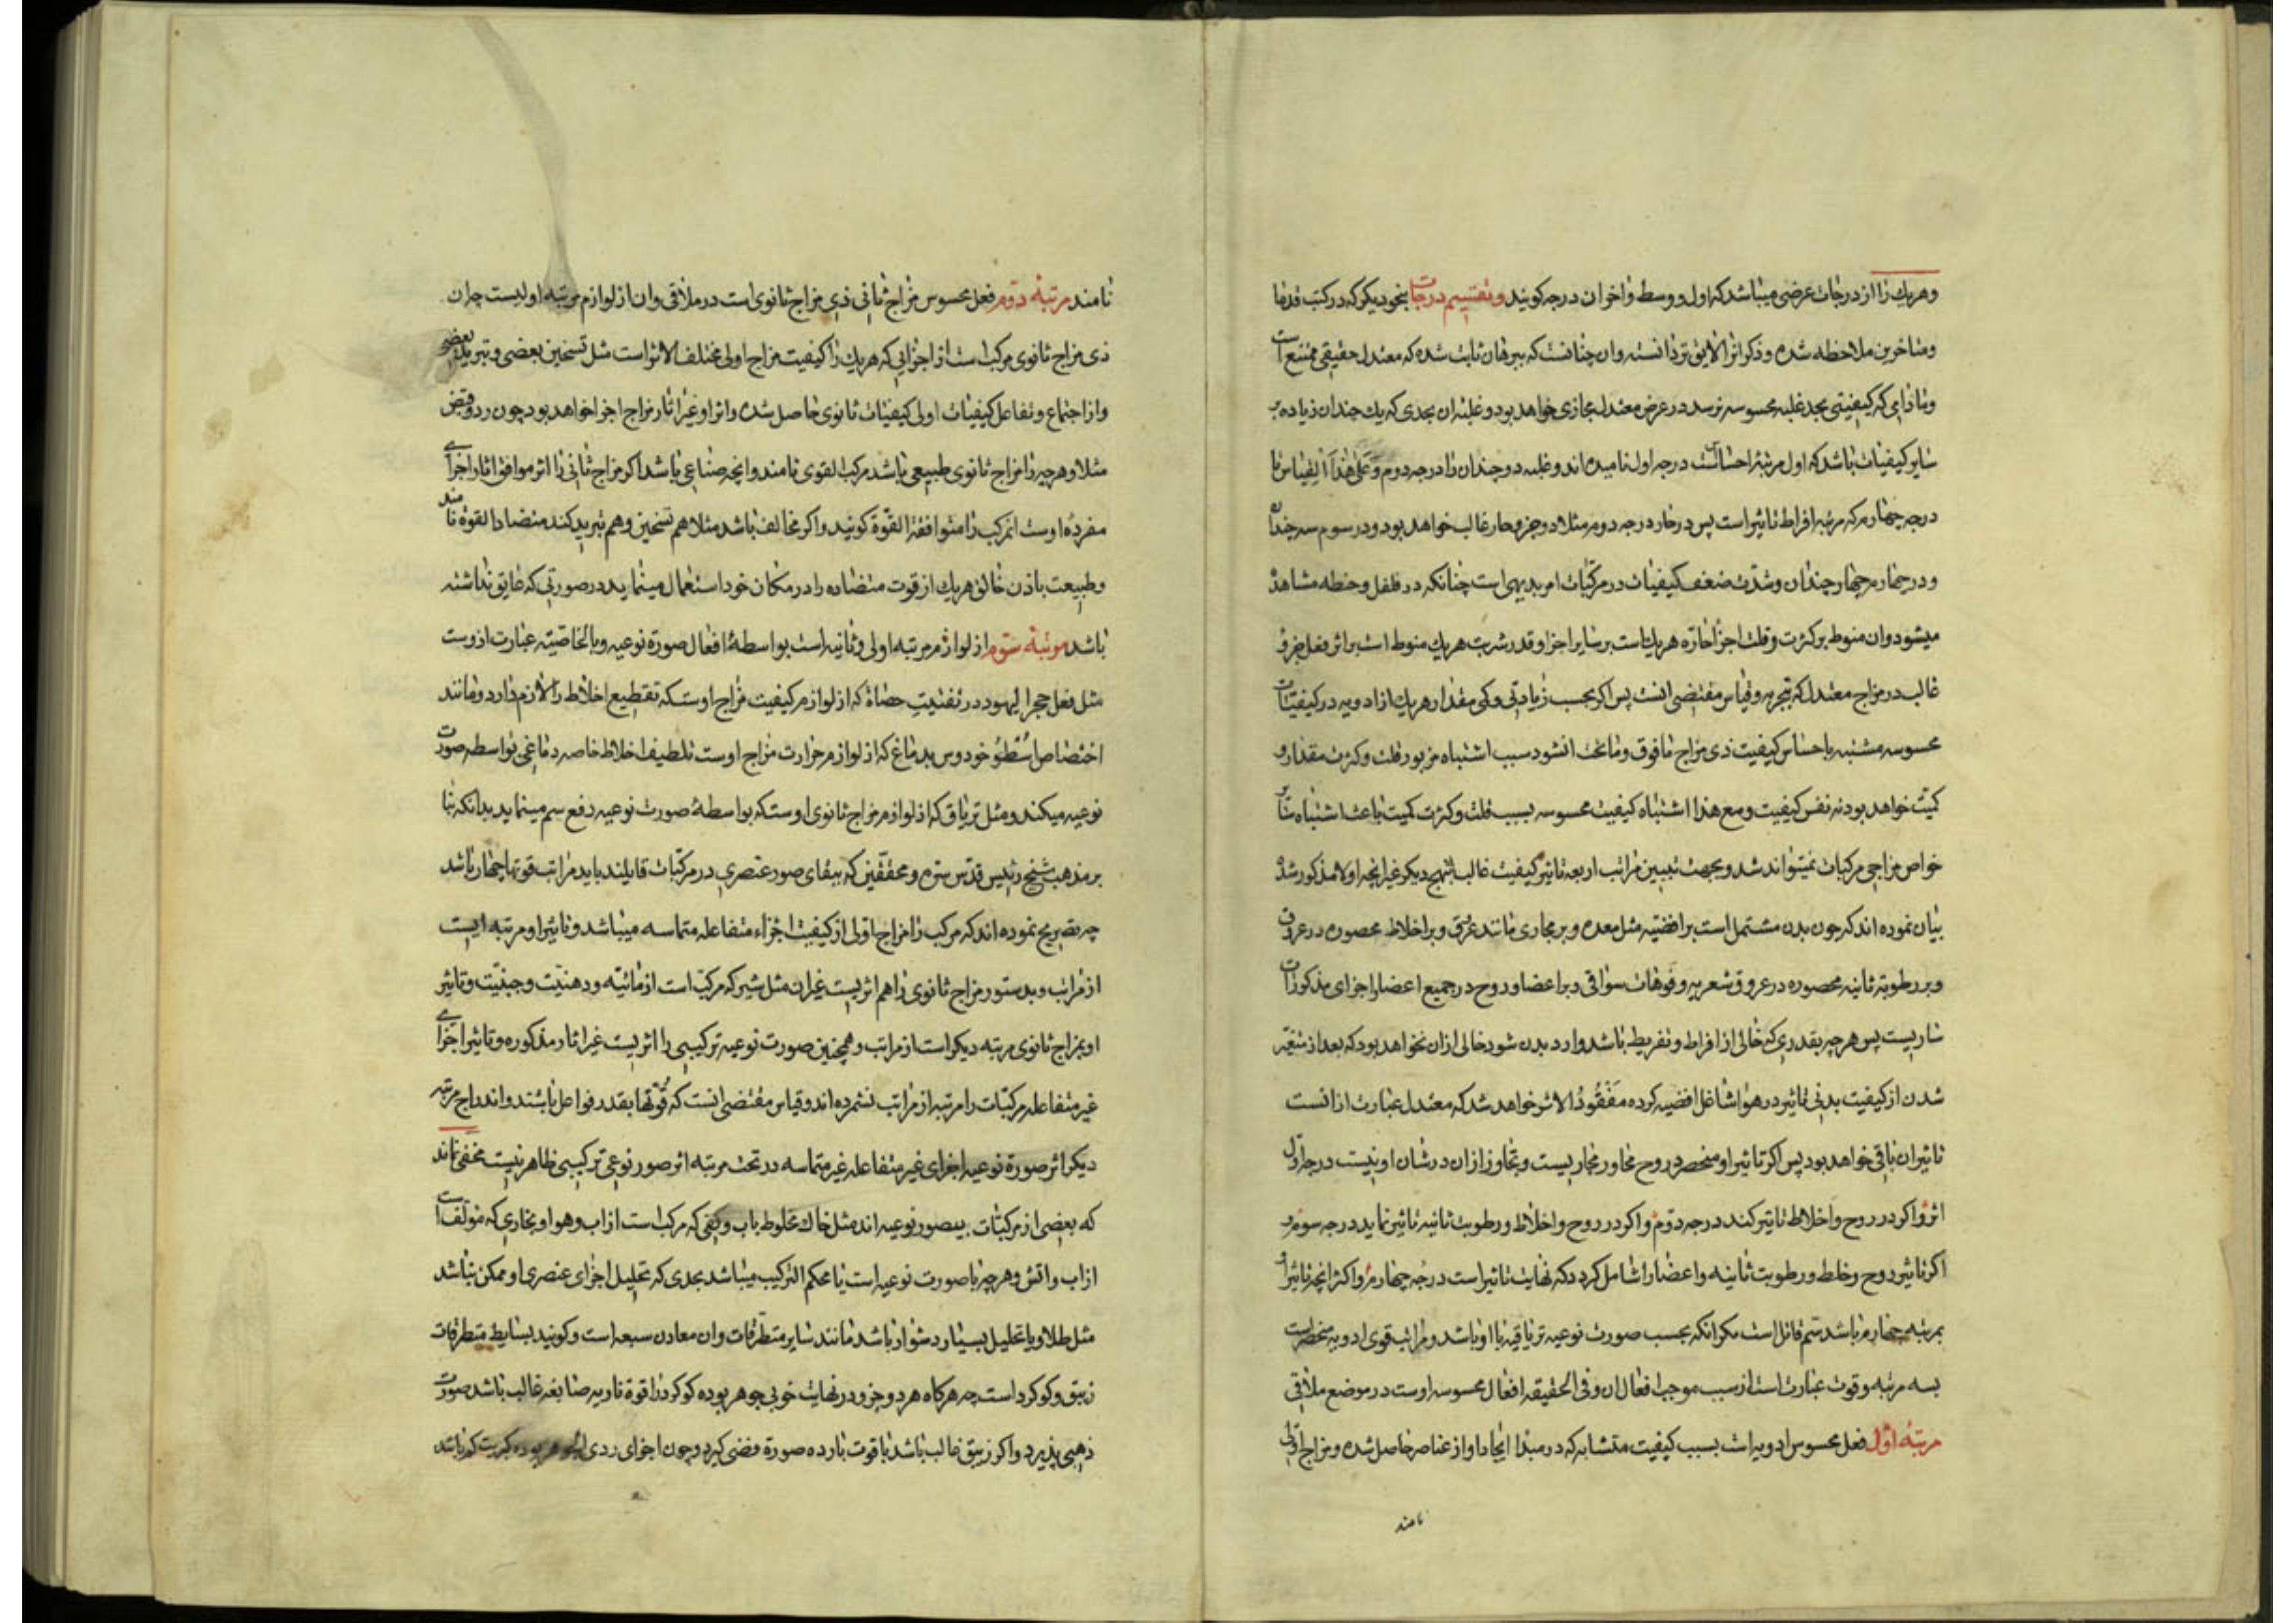 وهریك را از درجات عرضی میباشد که اول و وسط و اخر ان درجه کویند و تقسیم درجات بنحو دیکر که در کتب قدما
و متاخرین ملاحظه شده و ذکر انرا لایق تر دانسته وان چنانست که ببرهان ثابت شده که معتدل حقیقی ممتنع است
و مادامی که کیفیتی بحد غلبه محسوسه نرسد در عرض معتدل مجازی خواهد بود و غلبه ان بحدی که یك چندان زیاده بر
سایر کیفیات باشد که اول مرتبه احساس است درجه اول نامیده اند و غلبه دو چندان را درجه دوم و علی هذا القیاس تا
درجه چهارم که مرتبه افراط تاثیر است پس در حار درجه دوم مثلا دو جزو حار غالب خواهد بود و در سوم سه چندان
و در چهارم چهار چندان و شدت ضعف کیفیات در مرکبات امر بدیهی است چنانکه در فلفل و حنطه مشاهده
میشود وان منوط بر کثرت و قلت اجزا حاره هریك است بر سایر اجزا و قدر شربت هریك منوط است بر اثر فعل جزو
غالب در مزاج معتدل که تجربه و قیاس مقتضی انست پس اکر بحسب زیادتی و کمی مقدار هریك از ادویه در کیفیات
محسوسه مشتبه باحساس کیفیت ذی مزاج مافوق و ماتحت ان شود سبب اشتباه مزبور قلت و کثرت مقدار و
کمیت خواهد بود نه نفس کیفیت و مع هذا اشتباه کیفیت محسوسه بسبب قلت و کثرت کمیت باعث اشتباه سایر
خواص مزاجی مرکبات نمیتواند شد و بجهت تبیین مراتب اربعه تاثیر کیفیت غالب بنهج دیکر غیر انچه اولا مذکور شد
بیان نموده اند که چون بدن مشتمل است بر افضیه مثل معده و بر مجاری مانند عروق و بر اخلاط محصوره در عروق
و بر رطوبة ثانیه محصوره در عروق شعریه و فوهات سواقی و بر اعضا و روح در جمیع اعضا و اجزای مذکورات
ساریست پس هرچه بقدری که خالی از افراط و تفریط باشد وارد بدن شود خالی ازان نخواهد بود که بعد از متغیر
شدن از کیفیت بدنی تاثیر در هوا شاغل افضیه کرده مفقود الاثر خواهد شد که معتدل عبارت از انست
تاثیر ان باقی خواهد بود پس اکر تاثیر او منحصر در روح مجاور مجاریست و تجاوز ازان در شان او نیست درجه اول
اثر و اکر در روح و اخلاط تاثیر کند درجه دوم و اکر در روح و اخلاط و رطوبت ثانیه تاثیر نماید درجه سوم و
اکر تاثیر روح و خلط و رطوبت ثانیه و اعضا را شامل کردد که نهایت تاثیر است درجه چهارم و اکثر انچه تاثیر او
بمرتبه چهارم باشد سم قاتل است مکر انکه بحسب صورت نوعیه تریاقیه با او باشد و مراتب قوی ادویه منحصر است
بسه مرتبه و قوت عبارت است از سبب موجب افعال ان و فی الحقیقه افعال محسوسه اوست در موضع ملاقی
مرتبه اول فعل محسوس ادویه است بسبب کیفیت متشابه که در مبدا ایجاد او از عناصر حاصل شده و مزاج اولی
نامند
نامند مرتبه دوم فعل محسوس مزاج ثانی ذی مزاج ثانوی است در ملاقی وان از لوازم مرتبه اولیست چه ان
ذی مزاج ثانوی مرکب است از اجزایی که هریك را کیفیت مزاج اولی مختلف الاثر است مثل تسخین بعضی و تبرید بعضی
و از اجتماع و تفاعل کیفیات اولی کیفیات ثانوی حاصل شده و اثر او غیر اثار مزاج اجزا خواهد بود چون ردع و قبض
مثلا و هرچه را مزاج ثانوی طبیعی باشد مرکب القوی نامند و انچه صناعی باشد اکر مزاج ثانی را اثر موافق اثار اجزای
مفرده اوست ان مرکب را متوافقة القوة کویند و اکر مخالف باشد مثلا هم تسخین و هم تبرید کند متضاد القوة نامند
و طبیعت باذن خالق هریك از قوت متضاده را در مکان خود استعمال مینماید در صورتی که عایق نداشته
باشد مرتبه سوم از لوازم مرتبه اولی و ثانیه است بواسطه افعال صورة نوعیه و بالخاصیته عبارت ازوست
مثل فعل حجر الیهود در تفتیت حصاة که از لوازم کیفیت مزاج اوست که تقطیع اخلاط را لازم دارد و مانند
اختصاص اسطوخودوس بدماغ که از لوازم حرارت مزاج اوست تلطیف اخلاط خاصه دماغی بواسطه صورت
نوعیه میکند و مثل تریاق که از لوازم مزاج ثانوی اوست که بواسطه صورت نوعیه دفع سم مینماید بدانکه بنا
بر مذهب شیخ رئیس قدس سره و محققین که ببقای صور عنصری در مرکبات قایلند باید مراتب قوتها چهار باشد
چه تصریح نموده اند که مرکب را مزاج اولی از کیفیت اجزاء متفاعله متماسه میباشد و تاثیر او مرتبه ایست
از مراتب و بدستور مزاج ثانوی را هم اثریست غیر ان مثل شیر که مرکب است از مائیه و دهنیت و جبنیت و تاثیر
او بمزاج ثانوی مرتبه دیکر است از مراتب و همچنین صورت نوعیه ترکیبی را اثریست غیر اثار مذکوره و تاثیر اجزای
غیر متفاعله مرکبات را مرتبه از مراتب نشمرده اند و قیاس مقتضی انست که قوتها بقدر فواعل باشند و اندراج مرتبه
دیکر اثر صورة نوعیه اجزای غیر متفاعله غیر متماسه در تحت مرتبه اثر صور نوعی ترکیبی ظاهر نیست مخفی نماند
که بعضی از مرکبات بیصور نوعیه اند مثل خاك مخلوط باب و کفی که مرکب است از اب و هوا و بخاری که مولف است
از اب و اتش و هرچه با صورت نوعیه است یا محکم الترکیب میباشد بحدی که تحلیل اجزای عنصری او ممکن نباشد
مثل طلا و یا تحلیل بسیار دشوار باشد مانند سایر متطرقات وان معادن سبعه است و کویند بسایط متطرقات
زیبق و کوکرد است چه هرکاه هر دو جزو در نهایت خوبی جوهر بوده کوکرد را قوة ناریه صابغه غالب باشد صورت
ذهبی پذیرد و اکر زیبق غالب باشد با قوت بارده صورة فضی کیرد و چون اجزای ردی الجوهر بوده کبریت کم باشد